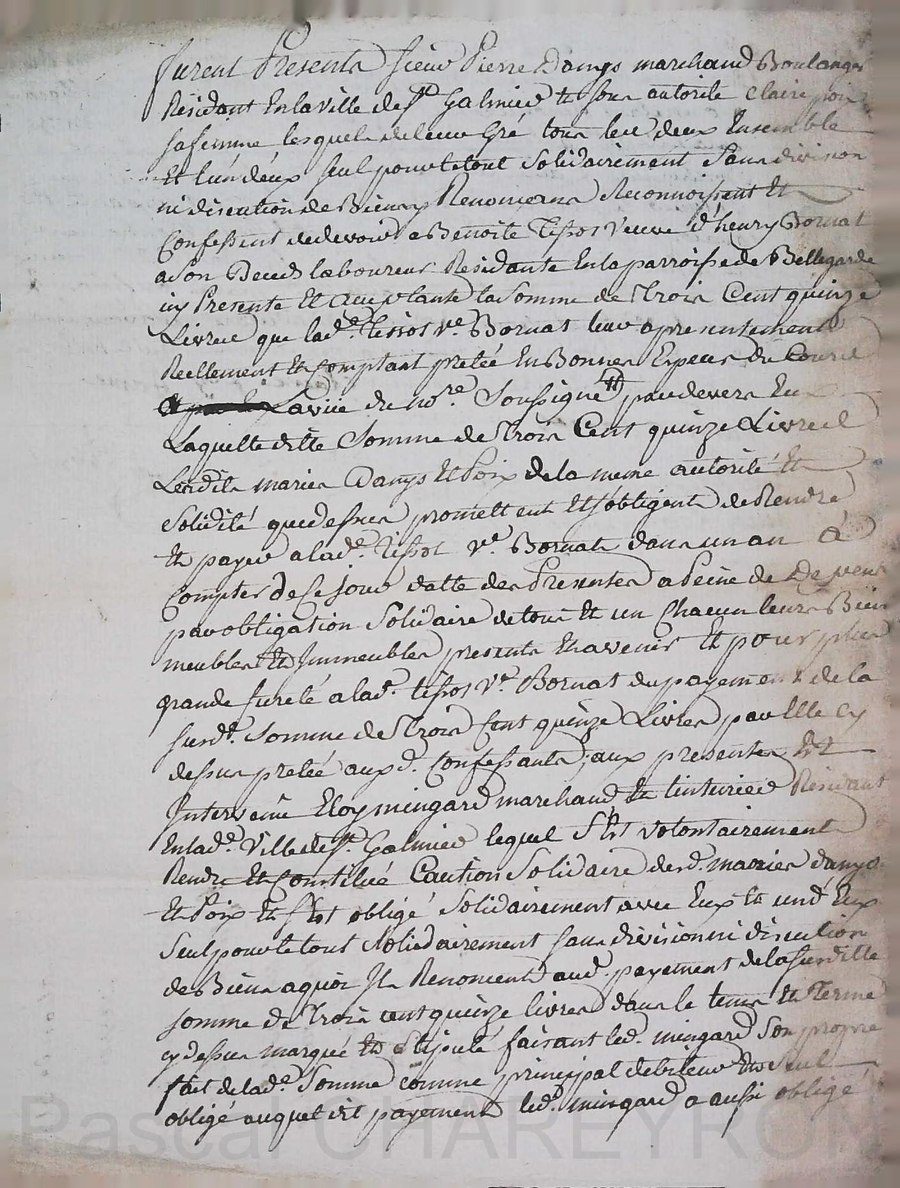 furent Presents sieur Pierre Damys marchand Boulanger
Résidant En la ville de St. Galmier et sous autorité Claire poix
sa femme lesquels de leur Gré tous les deux Ensemble
Et l'un d'eux seul pour le tout Solidairement Sans division
ni discution de Biens Renoncens Reconnoissent Et
Confessent de devoir a Benoite Tissot veuve d'henry Bornat
a son Deced laboureur Résidante En la parroisse de Bellegarde
icy Presente Et acceptante la Somme de Trois Cent quinze
Livres que lad.e Tissot ve. Bornat leur a presentement
Reellement Et Comptant pretée En Bonnes Especes du Cours
La vüe du no.re Soussigné par devers Eux
Laquelle ditte Somme de Trois Cent quinze Livres
Lesdits mariés Damys Et Poix de la meme autorité Et
Solidité que dessus promettent Et s'obligent de Rendre
Et payer a lad.e Tissot ve. Bornat dans un an à
Compter de Ce jour datte des Presentes a Peine de
par obligation Solidaire de tous Et un Chacun leurs Biens
meubles Et Immeubles presents Et avenir Et pour plus
grande Sureté a lad.e tissot ve. Bornat du payement de la
susd.e Somme de Trois Cent quinze Livres par Elle cy
dessus pretée auxd. Confessants, aux presentes Est
Intervenu Eloy mingard marchand Et tinturier Résidant
En lad.e Ville de St. Galmier lequel S'Est volontairement
Rendu Et Constitué Caution Solidaire desd. mariés damys
Et Poix Et s'Est obligé Solidairement avec Eux Et un d'Eux
Seul pour le tout Solidairement sans division ni discution
de Biens a quoi Il Renoncent aud. payement de la susditte
somme de Trois cent quinze livres dans le tems Et Terme
cy dessus marqué Et Stipulé faisant led. mingard Son propre
fait de lad.e Somme comme principal debiteur Et Seul
obligé auquel dit payement led. mingard a aussi obligé
Pascal CHAREYRON